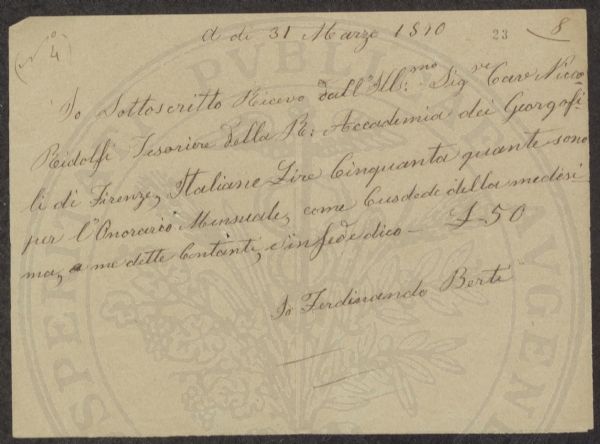 (N° 4)
A dì 31 Marzo 1890
23
8
Io Sottoscritto Ricevo dall'Ill:mo Sigre Cav Nicco-
Ridolfi Tesoriere della R: Accademia dei Georgofi-
li di Firenze, Italiane Lire Cinquanta quante sono
per l'Onorario Mensuale, come Cusdode della medesi
ma, a me dette Contanti, e in fede dico — £ 50
Io Ferdinando Berti
PVBLICAE